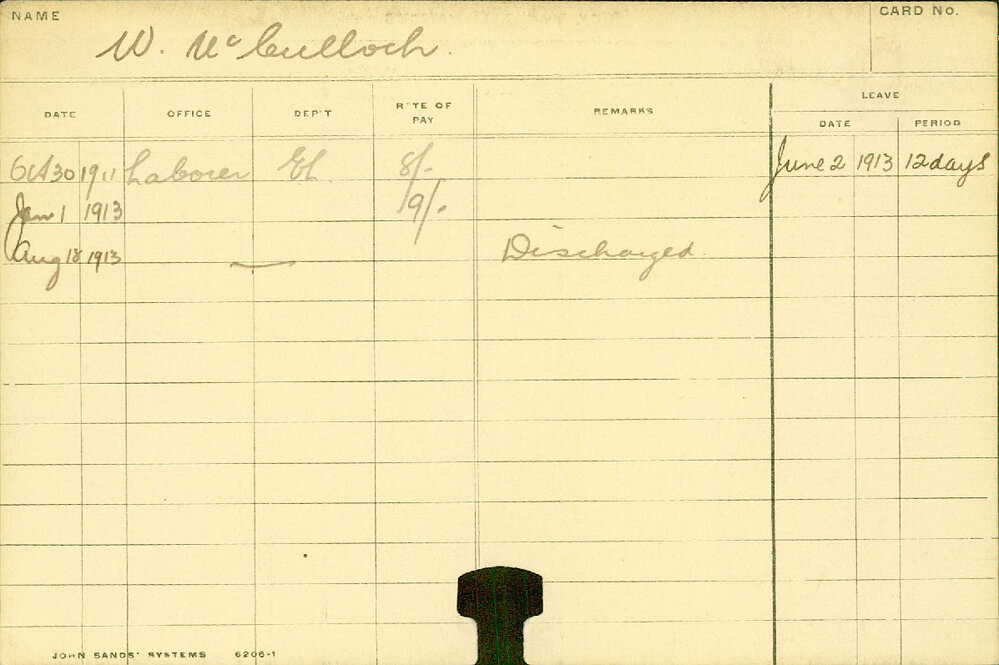 NAME
CARD No.
W. McCulloch.
DATE OFFICE DEP'T RATE OF PAY REMARKS LEAVE
DATE PERIOD
Oct 30 1911 Laborer El. 8/- June 2 1913 12 days
Jan 1 1913 9/-
Aug 18 1913 — Discharged.
JOHN SANDS' SYSTEMS 6206-1